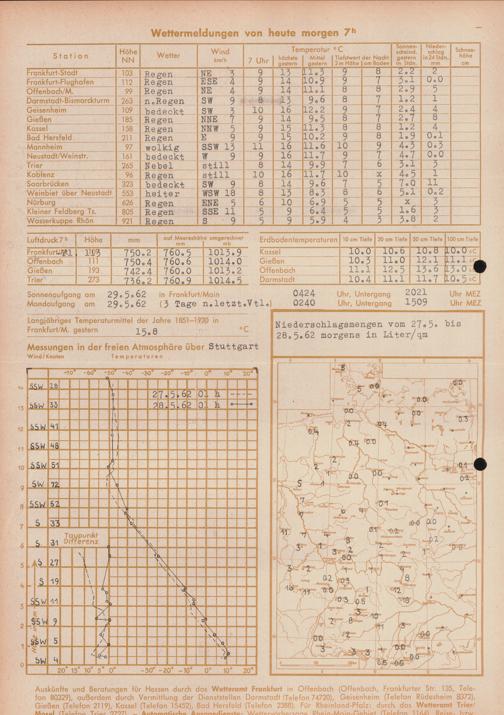 Wettermeldungen von heute morgen 7h
Station Höhe NN Wetter Wind km/h Temperatur °C Sonnenscheind. gestern in Stdn. Niederschlag in 24 Stdn. mm Schneehöhe cm
7 Uhr höchste gestern Mittel gestern Tiefstwert der Nacht 2 m Höhe am Boden
Frankfurt-Stadt 103 Regen NE 3 9 13 11.3 9 8 2.2 2
Frankfurt-Flughafen 112 Regen ESE 4 9 14 10.9 9 7 3.1 0.0
Offenbach/M. 99 Regen NE 4 9 14 11.1 8 8 2.9 5
Darmstadt-Bismarckturm 263 n.Regen SW 9 8 13 9.6 8 7 1.2 1
Geisenheim 109 bedeckt SW x 10 16 12.2 9 7 2.4 4
Gießen 185 Regen NNE 7 9 14 9.5 8 7 2.7 8
Kassel 158 Regen NNW 5 9 15 11.3 8 8 1.2 4
Bad Hersfeld 211 Regen E 9 9 15 10.2 9 8 1.9 0.1
Mannheim 97 wolkig SSW 13 11 16 11.6 10 9 4.3 0.3
Neustadt/Weinstr. 161 bedeckt W 9 9 16 11.7 9 7 4.7 0.0
Trier 265 Nebel still 8 14 9.9 7 6 3.1 3
Koblenz 96 Regen still 10 16 11.7 10 x 4.5 1
Saarbrücken 323 bedeckt SW 9 8 14 9.6 7 5 7.0 11
Weinbiet über Neustadt 553 heiter WSW 18 8 13 8.3 6 6 5.1 0.2
Nürburg 626 Regen ENE 5 6 10 6.9 5 5 x 3
Kleiner Feldberg Ts. 805 Regen SSE 11 5 9 6.4 5 5 1.6 3
Wasserkuppe Rhön 921 Regen S 9 5 9 5.9 4 3 3.8 2
Luftdruck 7h Höhe mm auf Meereshöhe umgerechnet mm mb
Frankfurt 113 750.2 760.5 1013.9
Offenbach 111 750.4 760.6 1014.0
Gießen 193 742.4 760.0 1013.2
Trier 273 736.2 760.9 1014.5
Erdbodentemperaturen 10 cm Tiefe 20 cm Tiefe 50 cm Tiefe 100 cm Tiefe
Kassel 10.0 10.6 10.8 10.0 °C
Gießen 10.3 11.0 12.1 11.1 °C
Offenbach 11.1 12.5 13.6 13.0 °C
Darmstadt 10.4 11.1 11.7 10.5 °C
Sonnenaufgang am 29.5.62 in Frankfurt/Main 0424 Uhr, Untergang 2021 Uhr MEZ
Mondaufgang am 29.5.62 (3 Tage n.letzt.Vtl.) 0240 Uhr, Untergang 1509 Uhr MEZ
Langjähriges Temperaturmittel der Jahre 1851–1930 in
Frankfurt/M. gestern 15.8 °C
Niederschlagsmengen vom 27.5. bis
28.5.62 morgens in Liter/qm
Messungen in der freien Atmosphäre über Stuttgart
Wind/Knoten Temperaturen
-70° -60° -50° -40° -30° -20° -10° 0° 10° 20°
27.5.62 01 h
28.5.62 01 h
SSW 28
SSW 33
SSW 41
SSW 48
SSW 51
SW 72
SSW 62
S 33
S 31
Taupunkt
Differenz
S 27
S 19
SSW 11
SSW 9
SSW 5
SW 4
20° 15° 10° 5° 0° -50° -40° -30° -20° -10° 0° 10° 20°
Auskünfte und Beratungen für Hessen durch das Wetteramt Frankfurt in Offenbach (Offenbach, Frankfurter Str. 135, Telefon 80329), außerdem durch Vermittlung der Dienststellen Darmstadt (Telefon 74720), Geisenheim (Telefon Rüdesheim 8372),
Gießen (Telefon 2119), Kassel (Telefon 15452), Bad Hersfeld (Telefon 2388). Für Rheinland-Pfalz: durch das Wetteramt Trier/